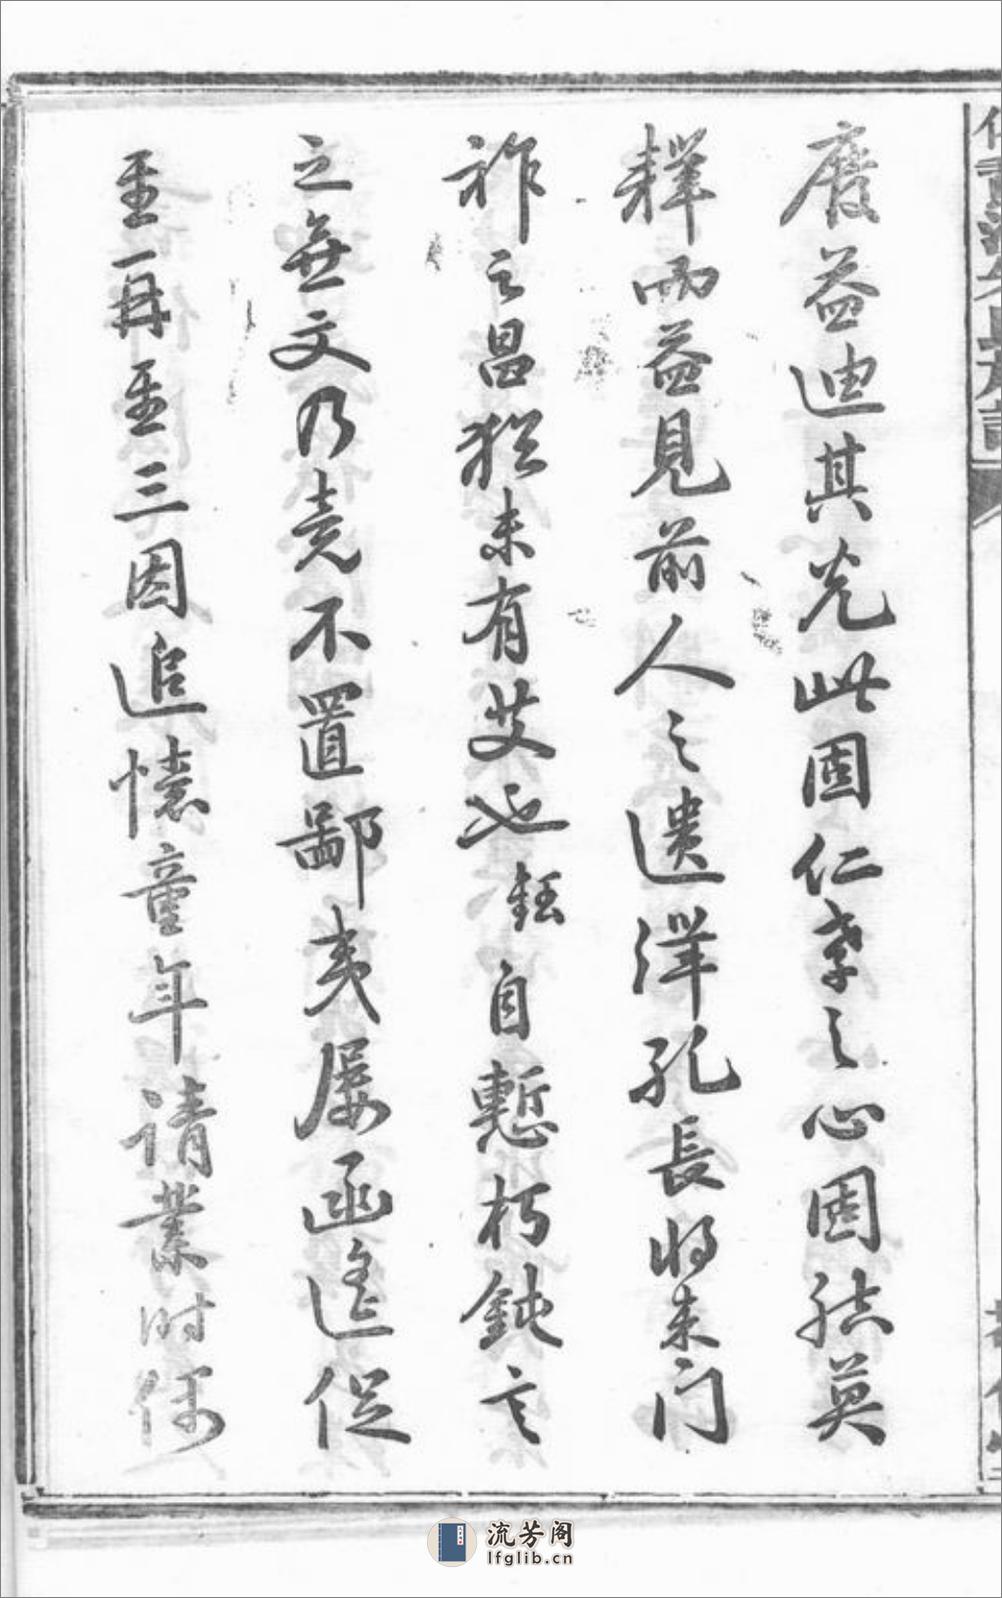 廢益迪其光此固仁孝之心固結莫
釋而益見前人之遺澤孔長將來门
祚之昌猶未有艾也鈺自慙朽鈍言
之無文乃堯不置鄙夷屡函遙促
至再至三因追懷童年请業时保
流芳阁
lfglib.cn